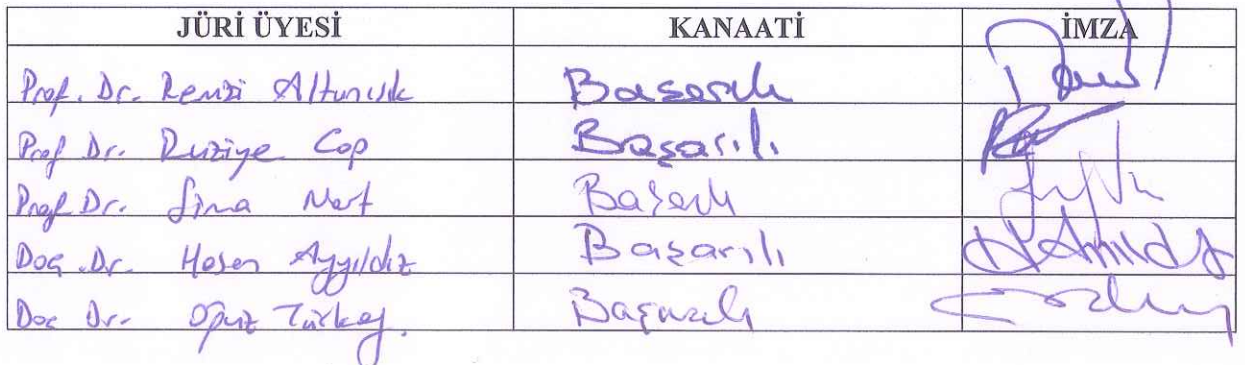 JÜRİ ÜYESİ KANAATİ İMZA
Prof. Dr. Remzi Altunışık Başarılı
Prof Dr. Ruziye Cop Başarılı
Prof. Dr. Sima Nart Başarılı
Doç. Dr. Hasan Ayyıldız Başarılı
Doç Dr. Oğuz Türkay. Başarılı